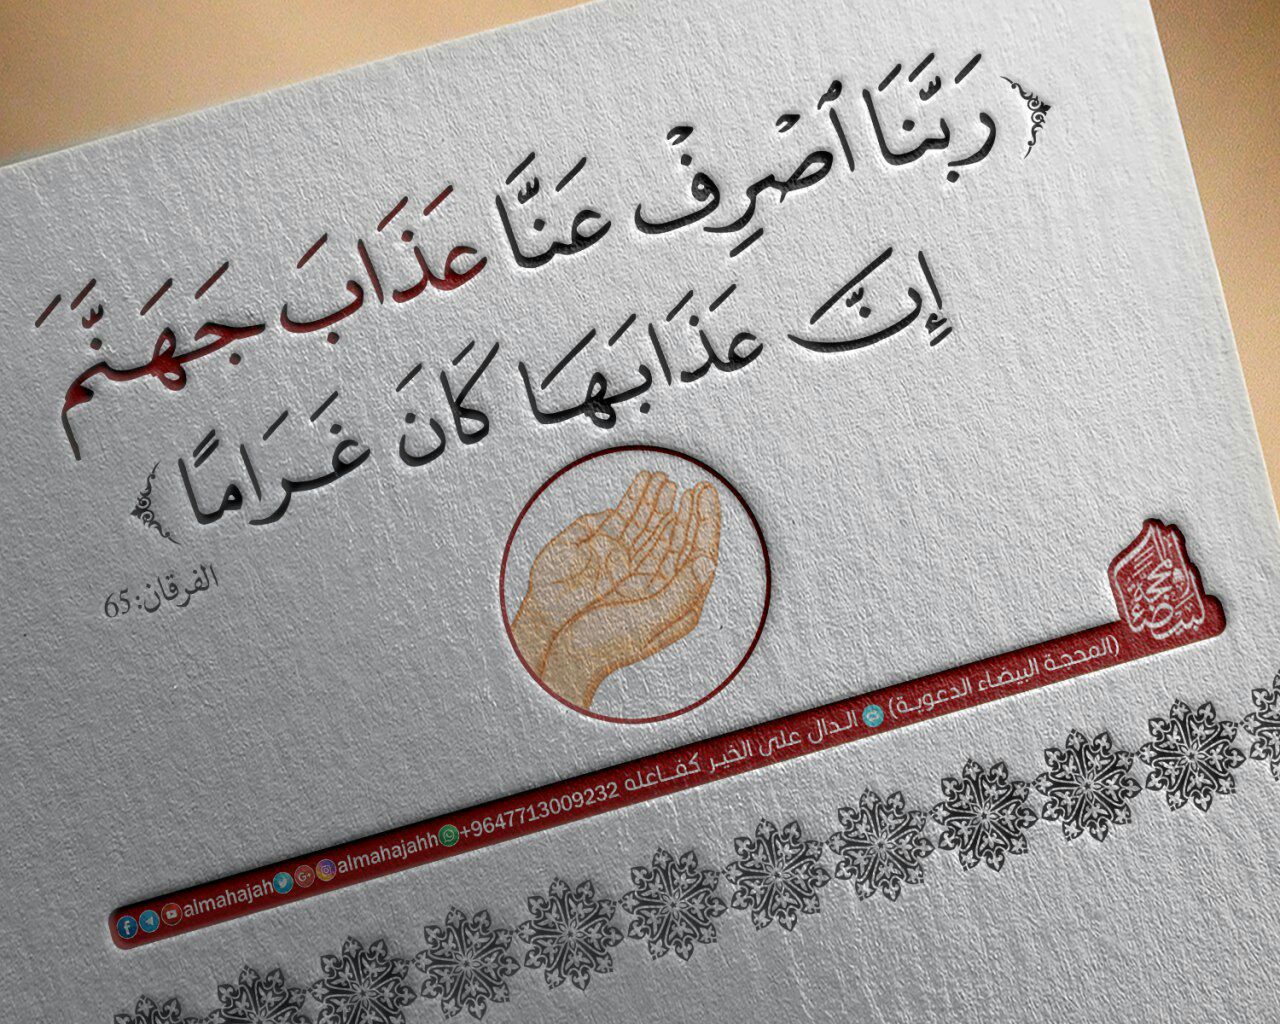 ﴿رَبَّنَا ٱصْرِفْ عَنَّا عَذَابَ جَهَنَّمَ
إِنَّ عَذَابَهَا كَانَ غَرَامًا﴾
الفرقان: 65
المحجة البيضاء
(المحجة البيضاء الدعوية) الدال على الخير كفاعله +9647713009232 almahajahh almahajah